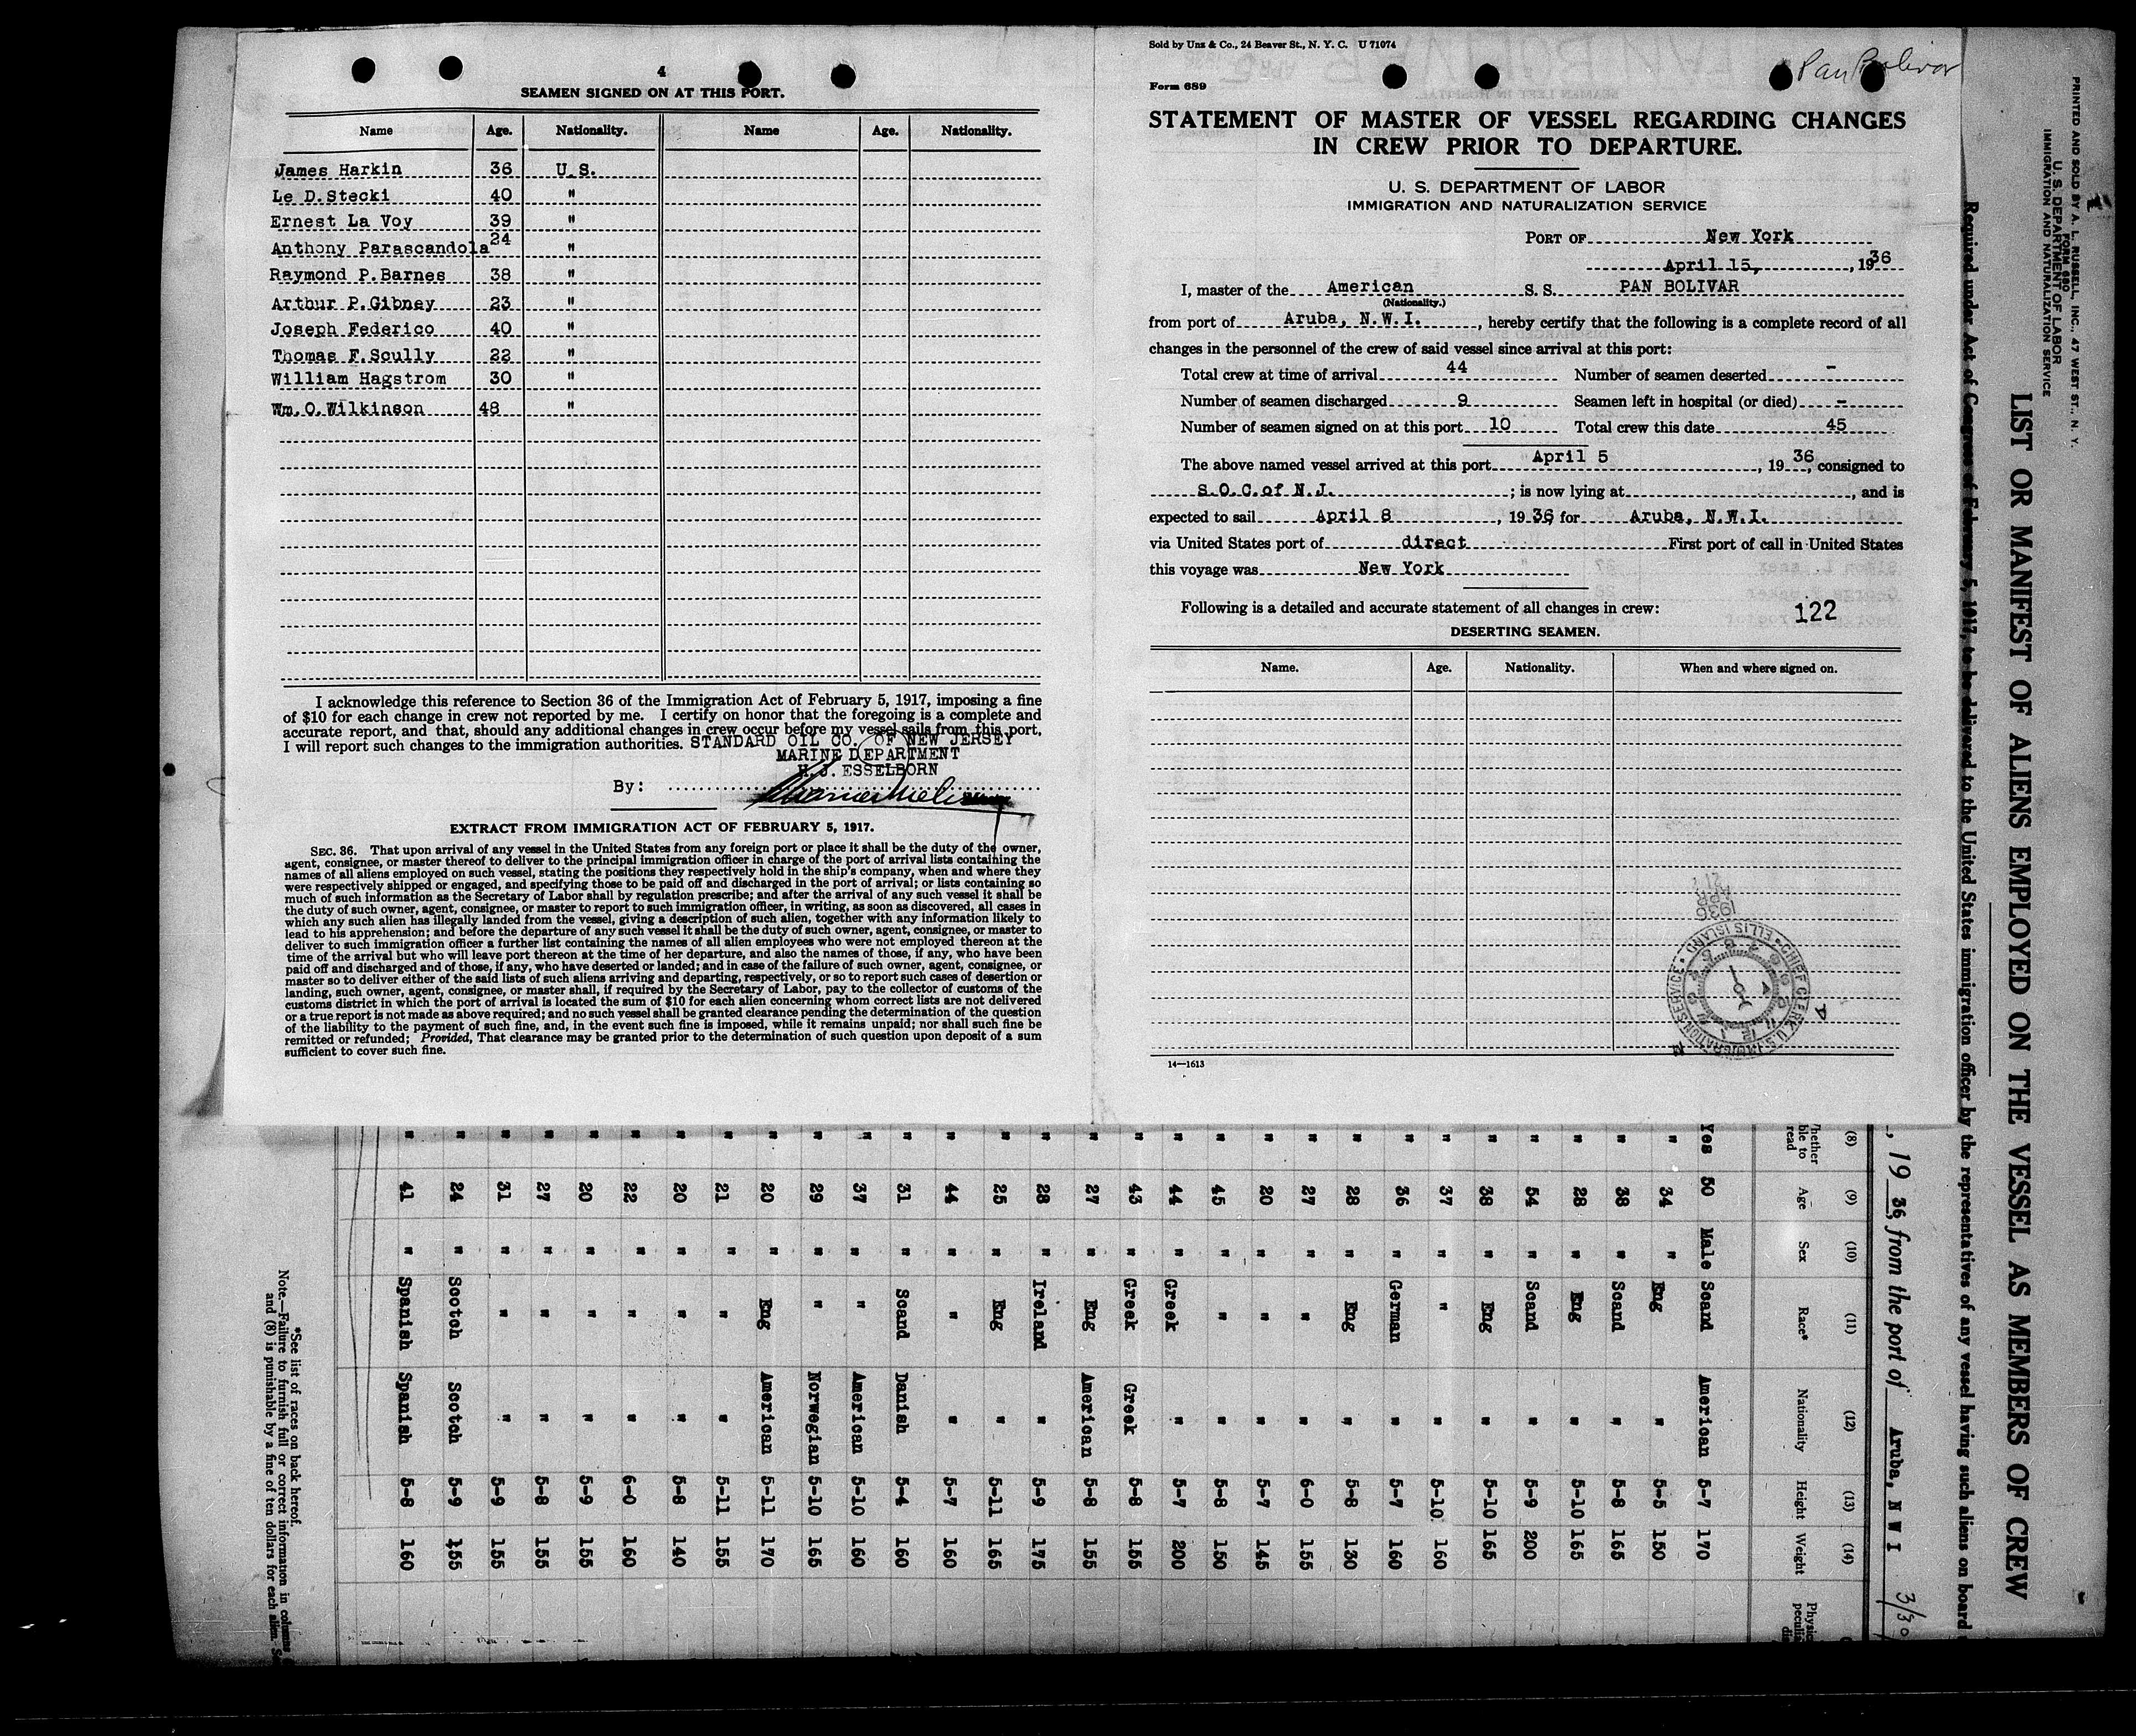 4
SEAMEN SIGNED ON AT THIS PORT.
Name Age. Nationality. Name Age. Nationality.
James Harkin 36 U.S.
Le D.Stecki 40 "
Ernest La Voy 39 "
Anthony Parascandola 24 "
Raymond P.Barnes 38 "
Arthur P.Gibney 23 "
Joseph Federico 40 "
Thomas F.Scully 22 "
William Hagstrom 30 "
Wm.O.Wilkinson 48 "
I acknowledge this reference to Section 36 of the Immigration Act of February 5, 1917, imposing a fine
of $10 for each change in crew not reported by me. I certify on honor that the foregoing is a complete and
accurate report, and that, should any additional changes in crew occur before my vessel sails from this port,
I will report such changes to the immigration authorities. STANDARD OIL CO. OF NEW JERSEY
MARINE DEPARTMENT
H.J. ESSELBORN
By:
EXTRACT FROM IMMIGRATION ACT OF FEBRUARY 5, 1917.
SEC. 36. That upon arrival of any vessel in the United States from any foreign port or place it shall be the duty of the owner,
agent, consignee, or master thereof to deliver to the principal immigration officer in charge of the port of arrival lists containing the
names of all aliens employed on such vessel, stating the positions they respectively hold in the ship's company, when and where they
were respectively shipped or engaged, and specifying those to be paid off and discharged in the port of arrival; or lists containing so
much of such information as the Secretary of Labor shall by regulation prescribe; and after the arrival of any such vessel it shall be
the duty of such owner, agent, consignee, or master to report to such immigration officer, in writing, as soon as discovered, all cases in
which any such alien has illegally landed from the vessel, giving a description of such alien, together with any information likely to
lead to his apprehension; and before the departure of any such vessel it shall be the duty of such owner, agent, consignee, or master to
deliver to such immigration officer a further list containing the names of all alien employees who were not employed thereon at the
time of the arrival but who will leave port thereon at the time of her departure, and also the names of those, if any, who have been
paid off and discharged and of those, if any, who have deserted or landed; and in case of the failure of such owner, agent, consignee, or
master so to deliver either of the said lists of such aliens arriving and departing, respectively, or so to report such cases of desertion or
landing, such owner, agent, consignee, or master shall, if required by the Secretary of Labor, pay to the collector of customs of the
customs district in which the port of arrival is located the sum of $10 for each alien concerning whom correct lists are not delivered
or a true report is not made as above required; and no such vessel shall be granted clearance pending the determination of the question
of the liability to the payment of such fine, and, in the event such fine is imposed, while it remains unpaid; nor shall such fine be
remitted or refunded; Provided, That clearance may be granted prior to the determination of such question upon deposit of a sum
sufficient to cover such fine.
Sold by Unz & Co., 24 Beaver St., N. Y. C. U 71074
Pan Bolivar
Form 689
STATEMENT OF MASTER OF VESSEL REGARDING CHANGES
IN CREW PRIOR TO DEPARTURE.
U. S. DEPARTMENT OF LABOR
IMMIGRATION AND NATURALIZATION SERVICE
PORT OF New York
April 15, , 1936
I, master of the American S.S. PAN BOLIVAR
(Nationality.)
from port of Aruba, N.W.I. , hereby certify that the following is a complete record of all
changes in the personnel of the crew of said vessel since arrival at this port:
Total crew at time of arrival 44 Number of seamen deserted -
Number of seamen discharged 9 Seamen left in hospital (or died) -
Number of seamen signed on at this port 10 Total crew this date 45
The above named vessel arrived at this port April 5 , 1936, consigned to
S.O.C.of N.J. ; is now lying at , and is
expected to sail April 8 , 1936 for Aruba, N.W.I.
via United States port of direct First port of call in United States
this voyage was New York
Following is a detailed and accurate statement of all changes in crew: 122
DESERTING SEAMEN.
Name. Age. Nationality. When and where signed on.
1936 APR
CHIEF CLERK U.S. IMMIGRATION SERVICE · ELLIS ISLAND
14—1613
PRINTED AND SOLD BY A. L. RUSSELL, INC., 47 WEST ST., N. Y.
FORM 680
U. S. DEPARTMENT OF LABOR
IMMIGRATION AND NATURALIZATION SERVICE
LIST OR MANIFEST OF ALIENS EMPLOYED ON THE VESSEL AS MEMBERS OF CREW
Required under Act of Congress of February 5, 1917, to be delivered to the United States immigration officer by the representatives of any vessel having such aliens on board
, 1936, from the port of Aruba, N W I 3/30/
(8) (9) (10) (11) (12) (13) (14)
Whether able to read Age Sex Race* Nationality Height Weight
Yes 50 Male Scand American 5-7 170
" 34 " Eng " 5-5 150
" 38 " Scand " 5-8 165
" 28 " Eng " 5-10 165
" 54 " Scand " 5-9 200
" 38 " Eng " 5-10 165
" 37 " " " 5-10 160
" 36 " German " 5-7 160
" 28 " Eng " 5-8 130
" 27 " " " 6-0 155
" 20 " " " 5-7 145
" 45 " " " 5-8 150
" 44 " Greek " 5-7 200
" 43 " Greek Greek 5-8 155
" 27 " Eng American 5-8 155
" 28 " Ireland " 5-9 175
" 25 " Eng " 5-11 165
" 44 " " " 5-7 160
" 31 " Scand Danish 5-4 160
" 37 " " American 5-10 160
" 29 " " Norwegian 5-10 165
" 20 " Eng American 5-11 170
" 21 " " " 5-11 155
" 20 " " " 5-8 140
" 22 " " " 6-0 160
" 20 " " " 5-9 155
" 27 " " " 5-8 155
" 31 " " " 5-9 155
" 24 " Scotch Scotch 5-9 155
" 41 " Spanish Spanish 5-8 160
*See list of races on back hereof.
Note.—Failure to furnish full or correct information in columns
and (8) is punishable by a fine of ten dollars for each alien.